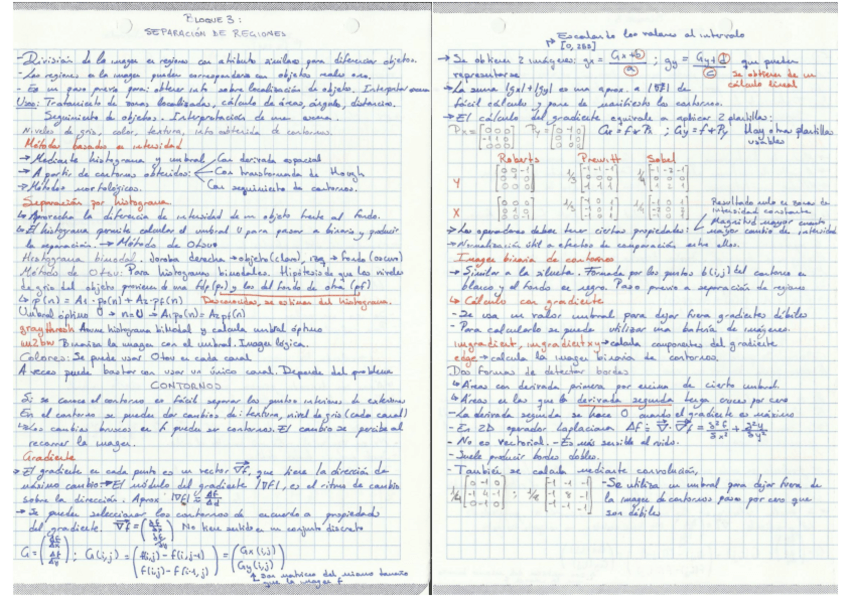 BLOQUE 3:
SEPARACIÓN DE REGIONES
- División de la imagen en regiones con atributos similares para diferenciar objetos.
- Las regiones en la imagen pueden corresponderse con objetos reales
- Es un paso previo para: obtener info sobre localización de objeto. Interpretar escena
Usos: Tratamiento de zonas localizadas, cálculo de áreas, ángulo, distancias.
Seguimiento de objetos. Interpretación de una escena.
Niveles de gris, color, textura, info obtenida de contornos.
Métodos basados en intensidad
→ Mediante histograma y umbral
Con derivada espacial
→ A partir de contornos obtenidos:
Con transformada de Hough
→ Métodos morfológicos.
Con seguimiento de contornos.
Separación por histograma.
↳ Aprovecha la diferencia de intensidad de un objeto frente al fondo.
↳ El histograma permite calcular el umbral U para pasar a binario y producir
la separación. → Método de Otsu
Histograma bimodal. Joroba derecha → objeto (claro), izq → fondo (oscuro)
Método de Otsu: Para histogramas bimodales. Hipótesis de que los niveles
de gris del objeto provienen de una fdp (po) y los del fondo de otra (pf)
↳ p(n) = A1·po(n) + A2·pf(n) Desconocidas, se estiman del histograma.
Umbral óptimo U → n=U → A1po(n) = A2pf(n)
graythresh Asume histograma bimodal y calcula umbral óptimo
im2bw Binariza la imagen con el umbral. Imagen lógica.
Colores: Se puede usar Otsu en cada canal
A veces puede bastar con usar un único canal. Depende del problema
CONTORNOS
Si se conoce el contorno es fácil separar los puntos interiores de exteriores
En el contorno se pueden dar cambios de: textura, nivel de gris (cada canal)
↳ Los cambios bruscos en f pueden ser contornos. El cambio se percibe al
recorrer la imagen.
Gradiente
→ El gradiente en cada punto es un vector ∇f, que tiene la dirección de
máximo cambio → El módulo del gradiente |∇f|, es el ritmo de cambio
sobre la dirección. Aprox |∇f| ≈ Δf/Δd
→ Se pueden seleccionar los contornos de acuerdo a propiedades
del gradiente. No tiene sentido en un conjunto discreto
G = (Δf/Δx Δf/Δy) ; G(i,j) = (f(i,j) - f(i,j-1) f(i,j) - f(i-1,j)) = (Gx(i,j) Gy(i,j))
Son matrices del mismo tamaño
que la imagen f
Escalando los valores al intervalo
[0,255]
→ Se obtienen 2 imágenes: gx = ; gy = que pueden
representarse
Se obtienen de un
cálculo lineal
→ La suma |gx|+|gy| es una aprox. a |∇f| de
fácil cálculo y pone de manifiesto los contornos.
→ El cálculo del gradiente equivale a aplicar 2 plantillas:
Px = [0 0 0 -1 1 0 0 0 0] Py = [0 -1 0 0 1 0 0 0 0] Gx = f * Px ; Gy = f * Py Hay otras plantillas
usables
Roberts Prewitt Sobel
Y
X
Resultado nulo en zonas de
intensidad constante
↳ Los operadores deben tener ciertas propiedades:
Magnitud mayor cuanto
mayor cambio de intensidad
→ Normalización útil a efectos de comparación entre ellos.
Imagen binaria de contornos
→ Similar a la silueta. Formada por los puntos b(i,j) del contorno en
blanco y el fondo en negro. Paso previo a separación de regiones
↳ Cálculo con gradiente
- Se usa un valor umbral para dejar fuera gradientes débiles
- Para calcularlo se puede utilizar una batería de imágenes.
imgradient, imgradientxy → calcula componentes del gradiente
edge → calcula la imagen binaria de contornos.
Dos formas de detectar bordes
↳ Áreas con derivada primera por encima de cierto umbral
↳ Áreas en las que la derivada segunda tenga cruces por cero
- La derivada segunda se hace 0 cuando el gradiente es máximo
- En 2D operador Laplaciana
- No es vectorial. - Es más sensible al ruido.
- Suele producir bordes dobles.
- También se calcula mediante convolución,
1/4 [0 -1 0 -1 4 -1 0 -1 0] ; 1/8 [-1 -1 -1 -1 8 -1 -1 -1 -1]
- Se utiliza un umbral para dejar fuera de
la imagen de contornos pasos por cero que
son débiles